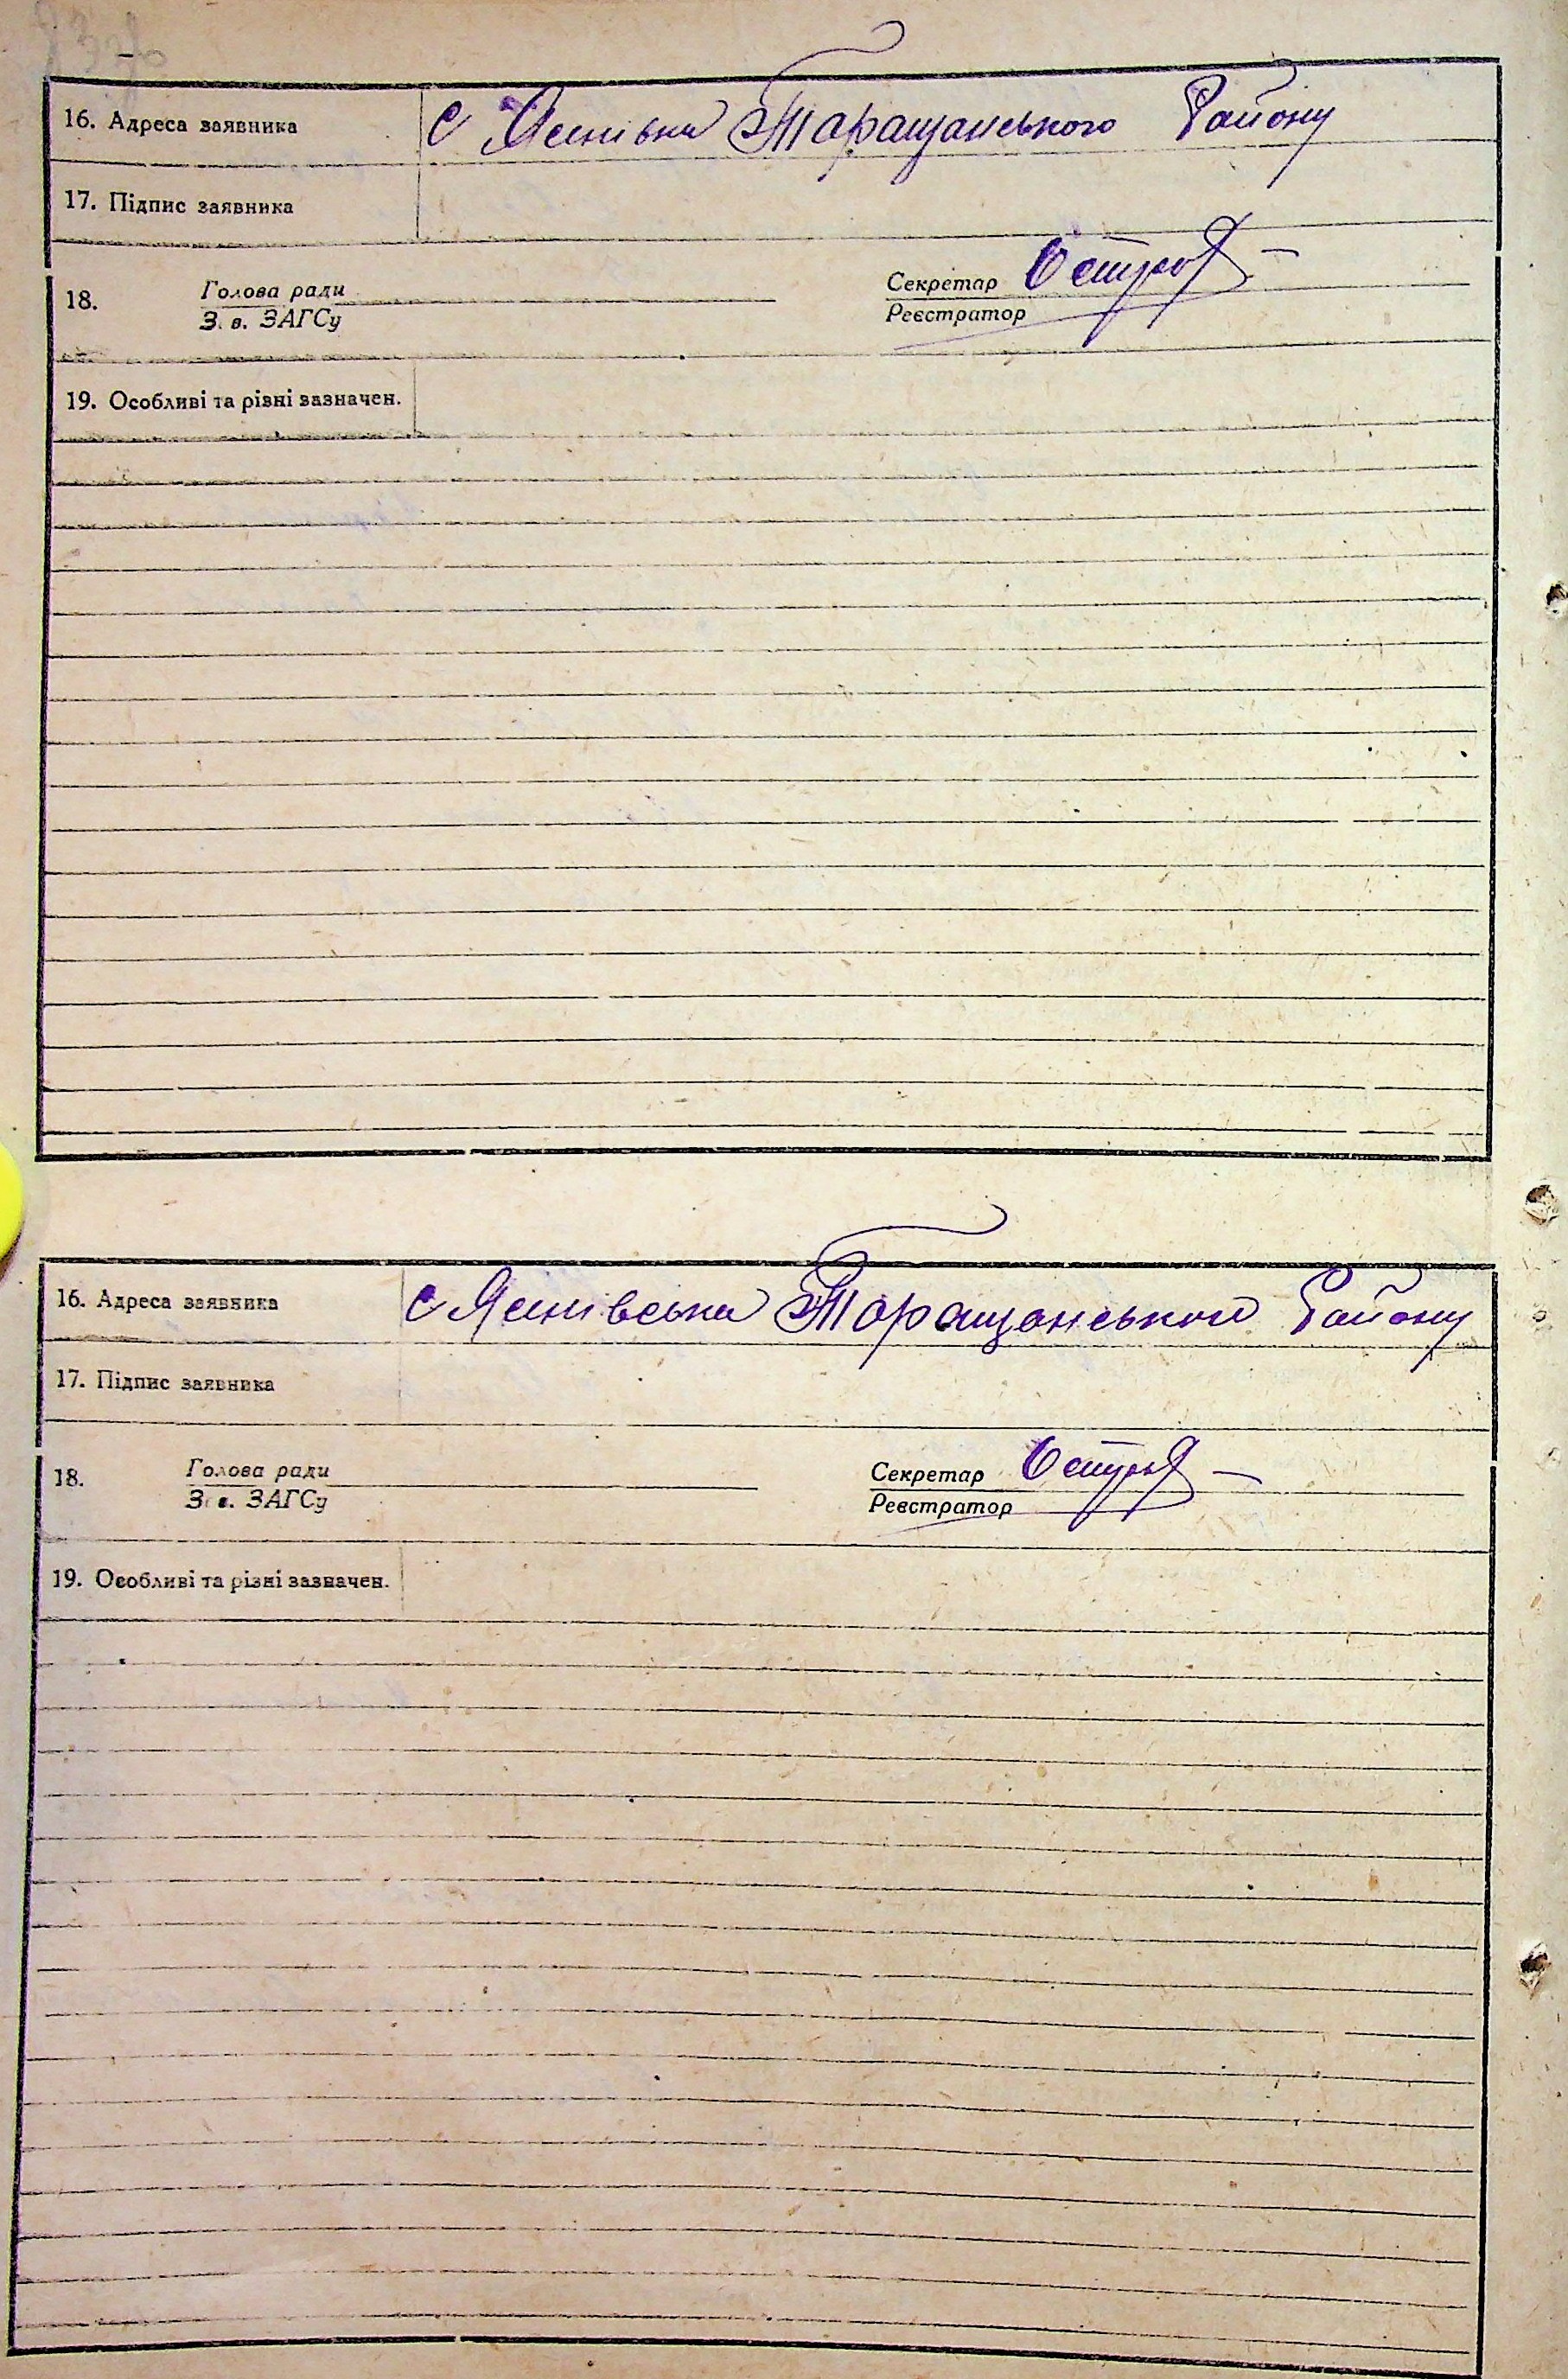 16. Адреса заявника С Яснівка Таращанського Району
17. Підпис заявника
18. Голова ради Секретар
З. в. ЗАГСу Реєстратор
19. Особливі та різні зазначен.
16. Адреса заявника С Яснівська Таращанського Району
17. Підпис заявника
18. Голова ради Секретар
З. в. ЗАГСу Реєстратор
19. Особливі та різні зазначен.